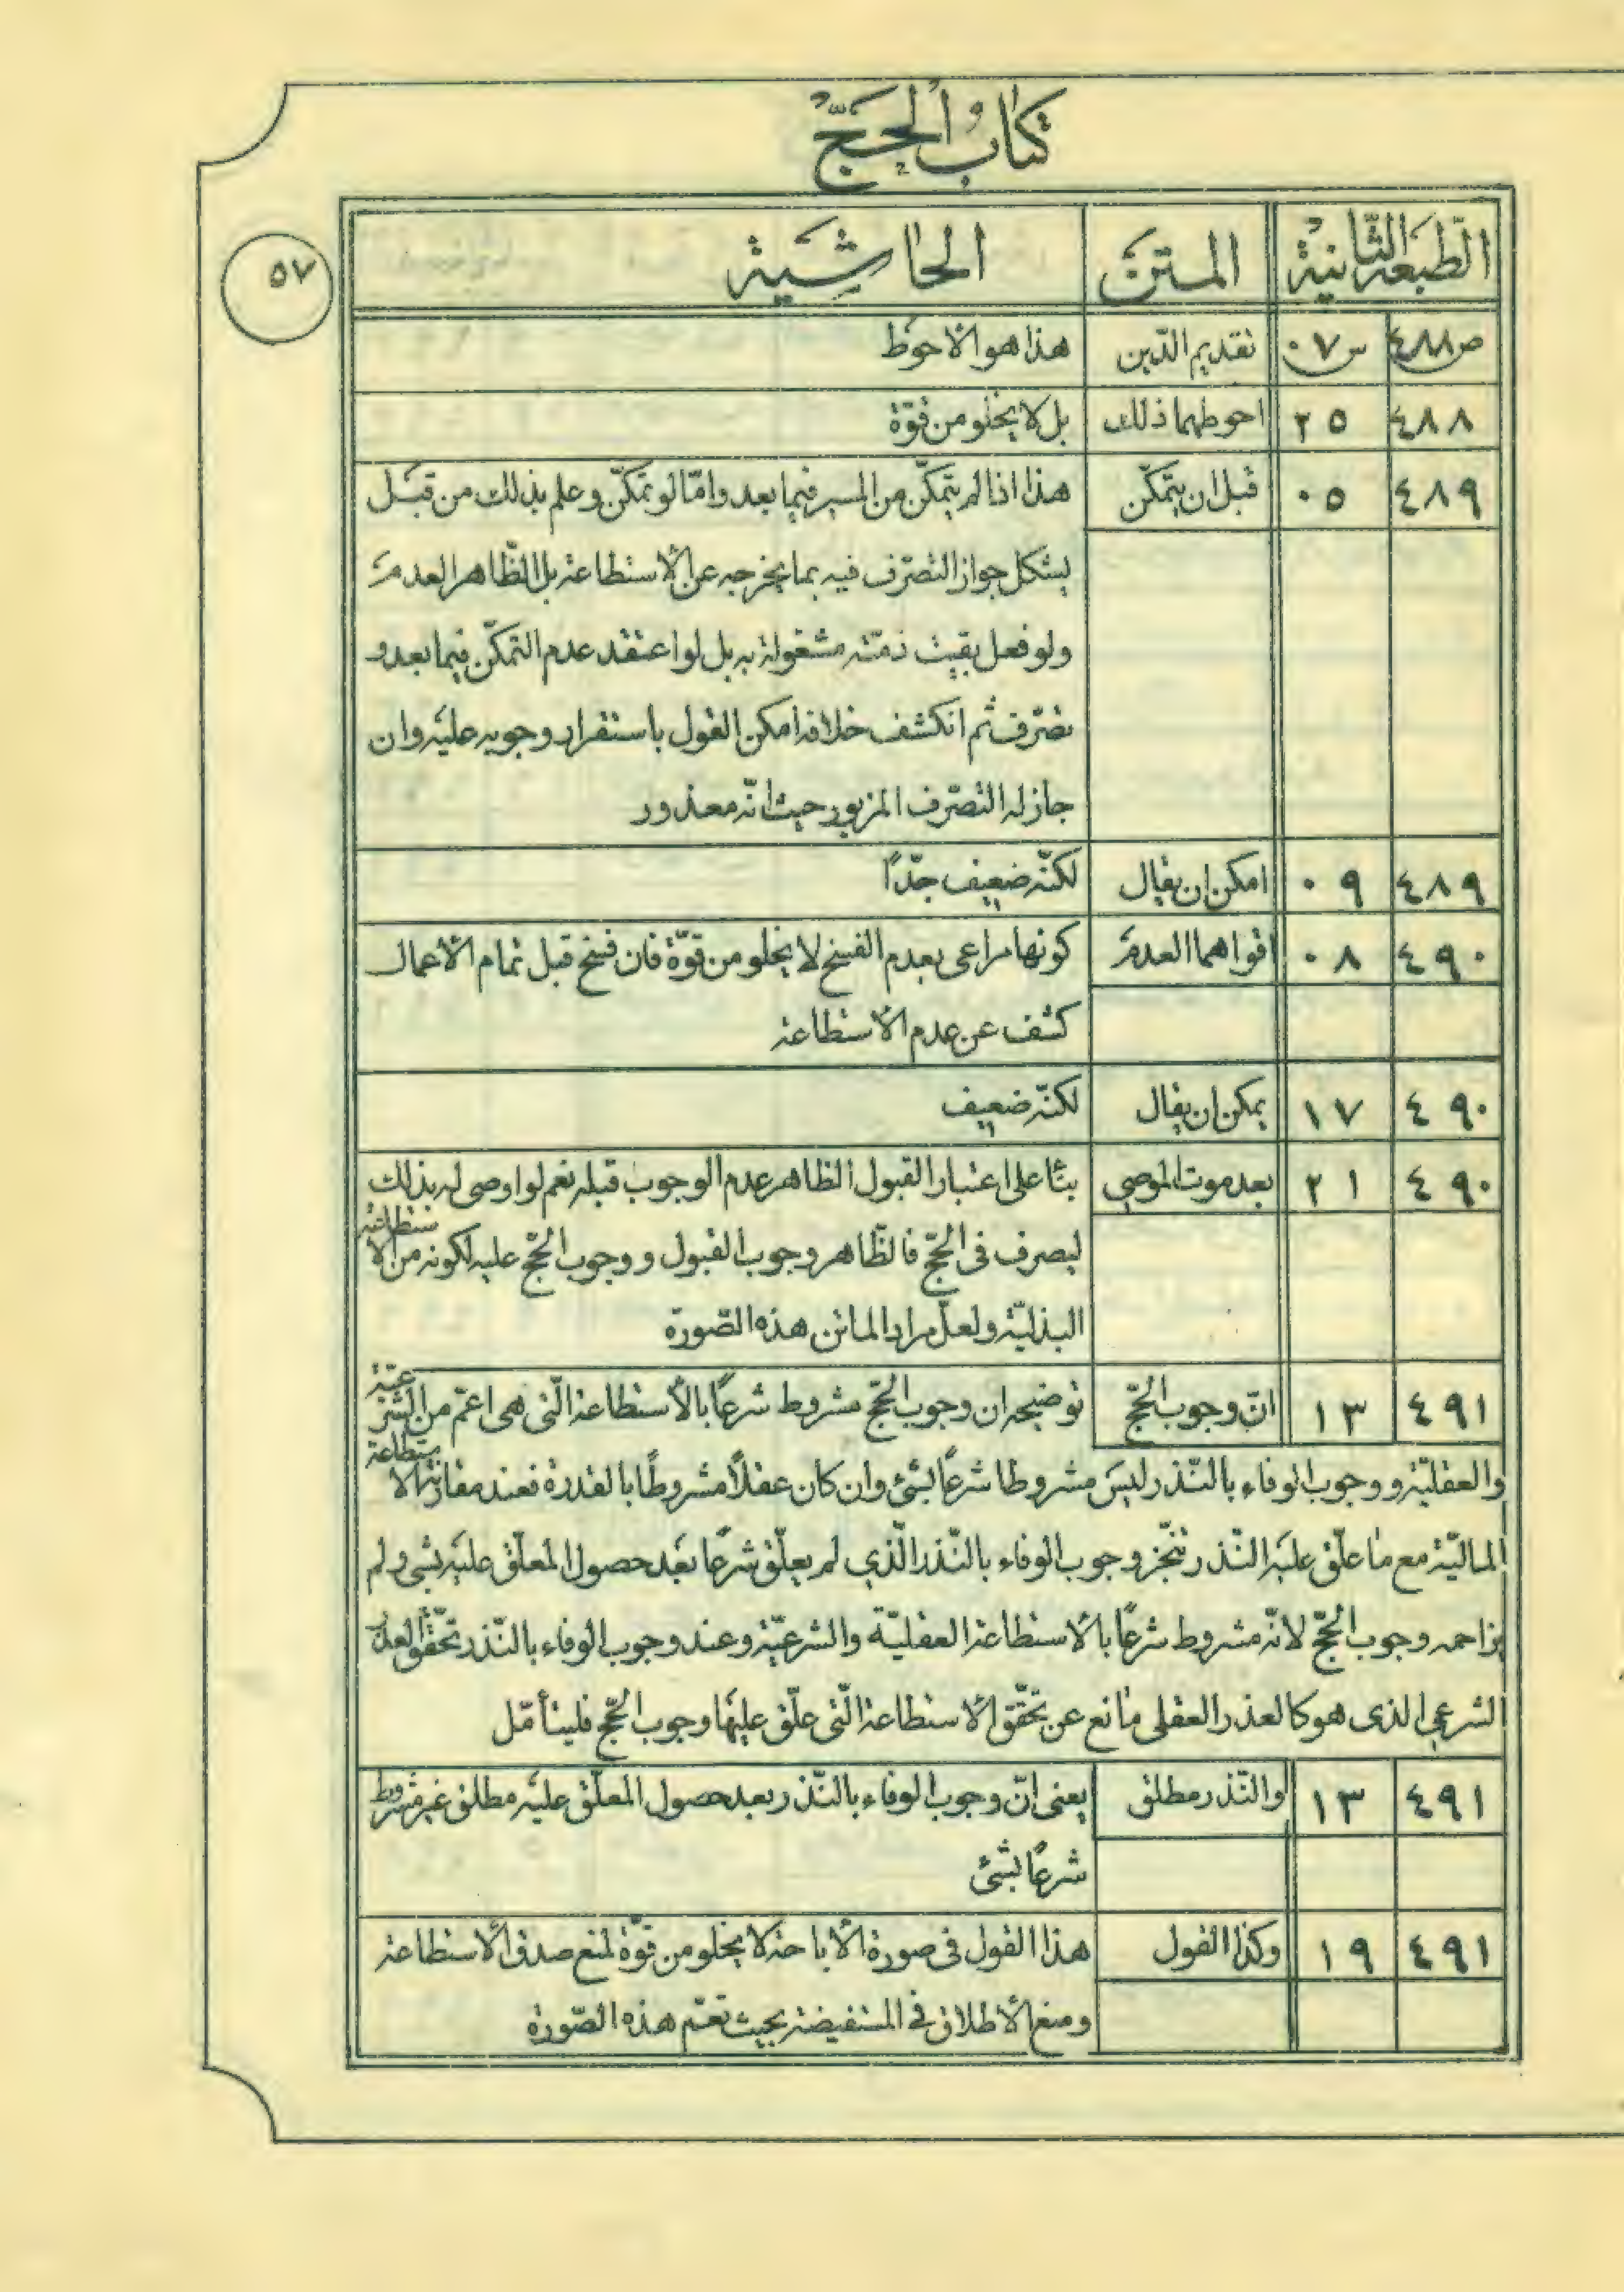 كتاب الحجّ
الطبعة الثانية المتن الحاشية
٥٧
ص٤٨٨ س٠٧ تقديم الدّين هذا هو الاحوط
٤٨٨ ٢٥ احوطهما ذلك بل لا يخلو من قوّة
٤٨٩ ٠٥ قبل ان يتمكّن هذا اذا لم يتمكّن من المسير فيما بعد وامّا لو تمكّن وعلم بذلك من قبل
يشكل جواز التصرّف فيه بما يخرجه عن الاستطاعة بل الظّاهر العدم
ولو فعل بقيت ذمّته مشغولة به بل لو اعتقد عدم التمكّن فيما بعد و
تصرّف ثم انكشف خلافه امكن القول باستقرار وجوبه عليه وان
جاز له التصرّف المزبور حيث انّه معذور
٤٨٩ ٠٩ امكن ان يقال لكنّه ضعيف جدّاً
٤٩٠ ٠٨ اقواهما العدم كونها مراعى بعدم الفسخ لا يخلو من قوّة فان فسخ قبل تمام الاعمال
كشف عن عدم الاستطاعة
٤٩٠ ١٧ يمكن ان يقال لكنّه ضعيف
٤٩٠ ٢١ بعد موت الموصي بناً على اعتبار القبول الظاهر عدم الوجوب قبله نعم لو اوصى له بذلك
ليصرف فى الحجّ فالظّاهر وجوب القبول و وجوب الحجّ عليه لكونه من الاستطاعة
البذليّة ولعلّ مراد الماتن هذه الصّورة
٤٩١ ١٣ انّ وجوب الحجّ توضيحه ان وجوب الحجّ مشروط شرعاً بالاستطاعة الّتى هى اعمّ من الشّرعيّة
والعقليّة و وجوب الوفاء بالنّذر ليس مشروطا شرعاً بشئ وان كان عقلاً مشروطاً بالقدرة فعند مقارنة الاستطاعة
الماليّة مع ما علّق عليه النّذر تنجّز وجوب الوفاء بالنّذر الّذي لم يعلّق شرعاً بعد حصول المعلّق عليه بشى ولم
يزاحمه وجوب الحجّ لانّه مشروط شرعاً بالاستطاعة العقليّة والشرعيّة وعند وجوب الوفاء بالنّذر تحقّق العذر
الشرعي الذى هو كالعذر العقلى مانع عن تحقّق الاستطاعة الّتى علّق عليها وجوب الحجّ فليتأمّل
٤٩١ ١٣ والنّذر مطلق يعنى انّ وجوب الوفاء بالنّذر بعد حصول المعلّق عليه مطلق غير مشروط
شرعاً بشئ
٤٩١ ١٩ وكذا القول هذا القول فى صورة الاباحة لا يخلو من قوّة لمنع صدق الاستطاعة
ومنع الاطلاق في المستفيضة بحيث تعمّ هذه الصّورة